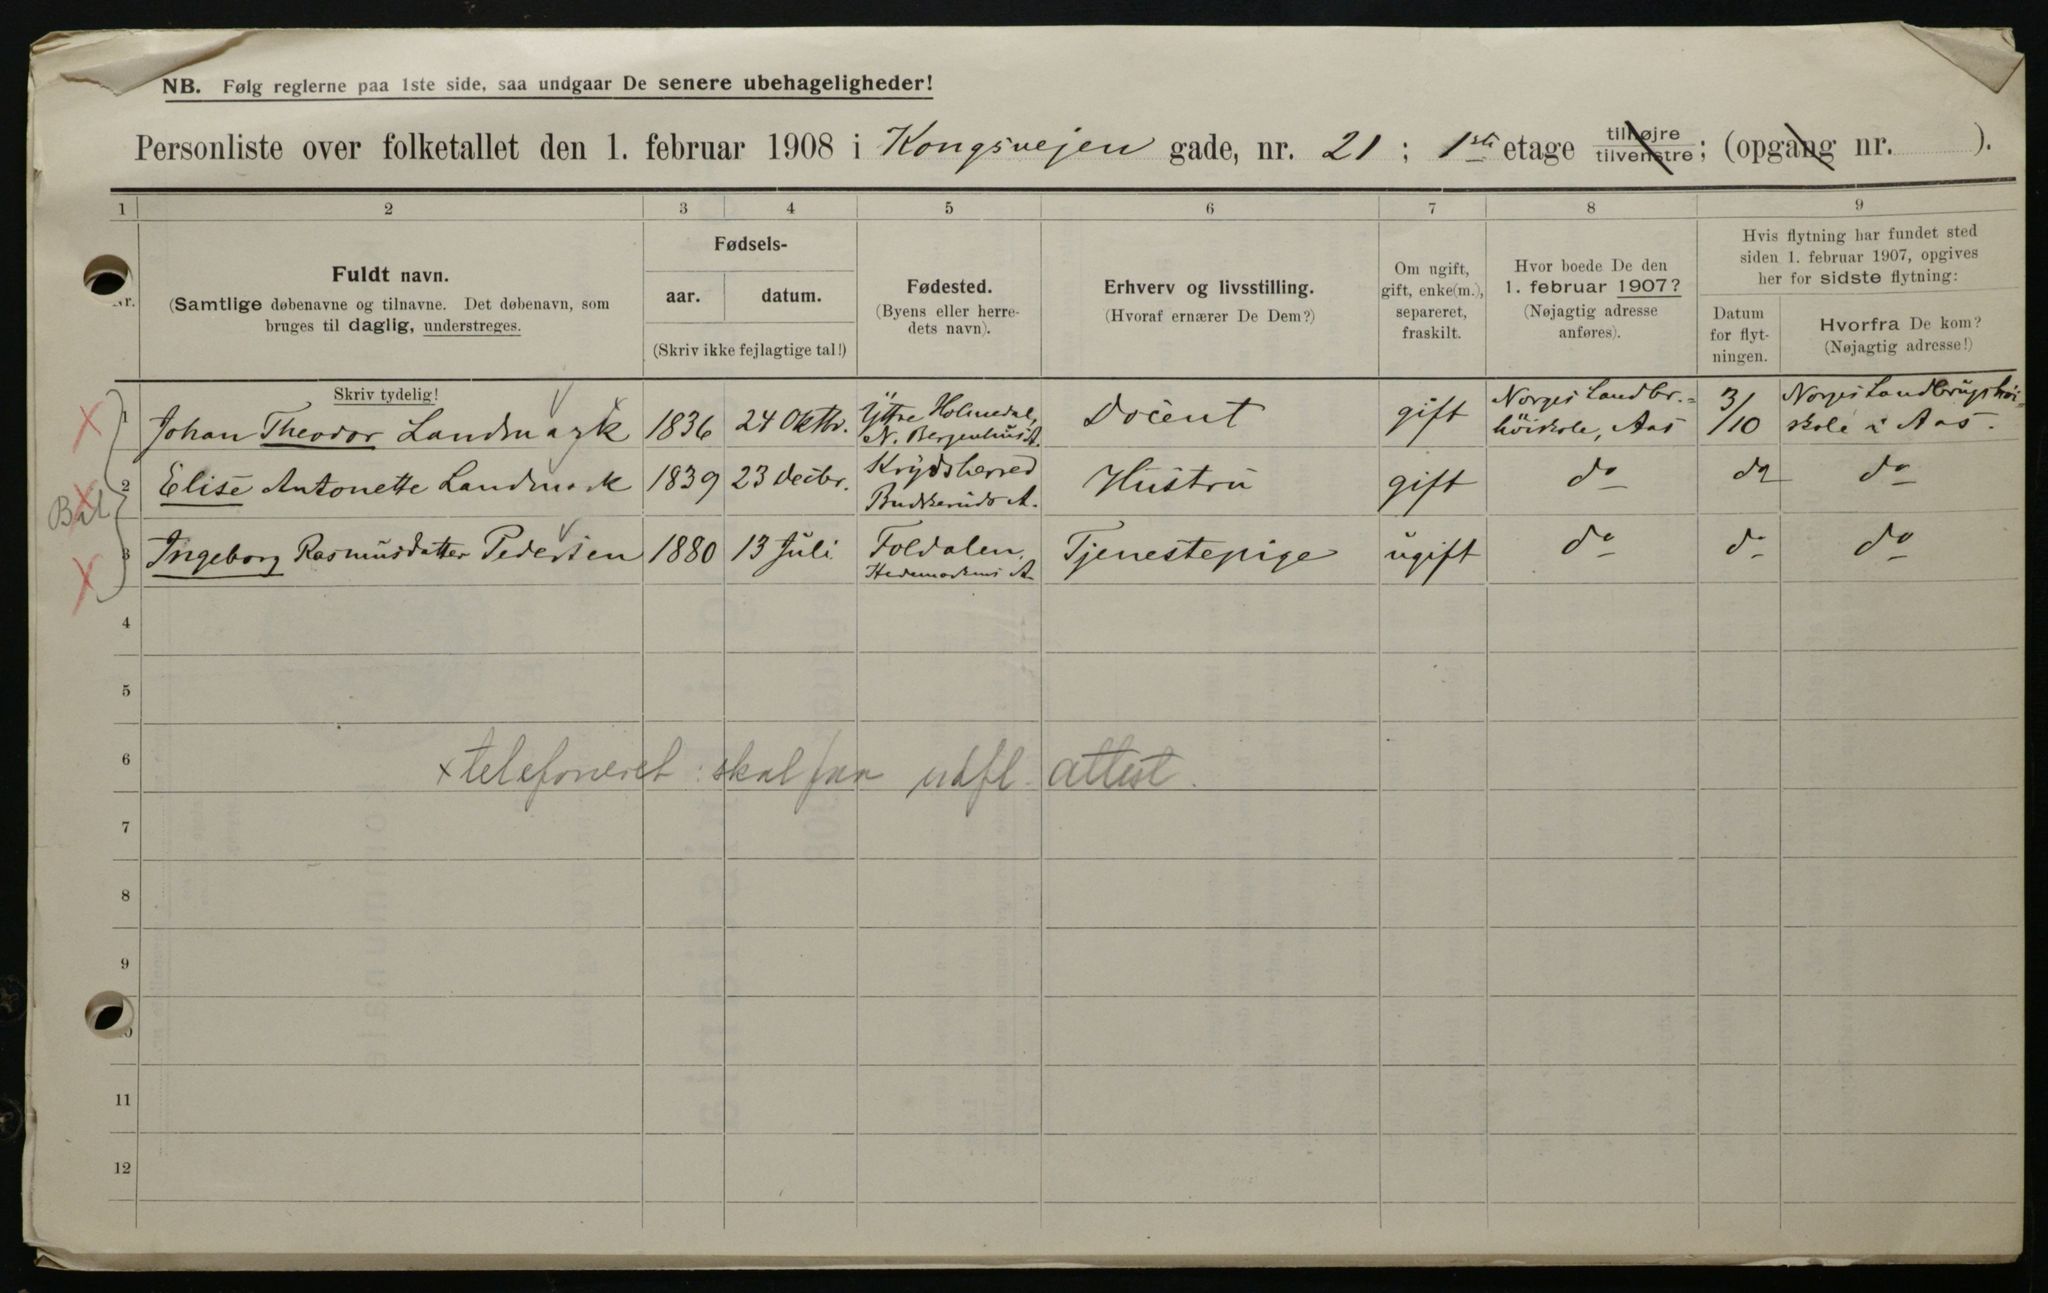 NB. Følg reglerne paa 1ste side, saa undgaar De senere ubehageligheder!
Personliste over folketallet den 1. februar 1908 i Kongsvejen gade, nr. 21 ; 1ste etage tilhøjre tilvenstre ; (opgang nr. ).
1 2 3 4 5 6 7 8 9
Nr.
Fuldt navn.
(Samtlige døbenavne og tilnavne. Det døbenavn, som
bruges til daglig, understreges.
Fødsels-
aar. datum.
(Skriv ikke fejlagtige tal!)
Fødested.
(Byens eller herre-
dets navn).
Erhverv og livsstilling.
(Hvoraf ernærer De Dem?)
Om ugift,
gift, enke(m.),
separeret,
fraskilt.
Hvor boede De den
1. februar 1907?
(Nøjagtig adresse
anføres).
Hvis flytning har fundet sted
siden 1. februar 1907, opgives
her for sidste flytning:
Datum
for flyt-
ningen.
Hvorfra De kom?
(Nøjagtig adresse!)
Skriv tydelig!
1 Johan Theodor Landmark 1836 24 Oktbr. Yttre Holmedal, N. Bergenhus A. Docent gift Norges Landbr.-höiskole, Aas 3/10 Norges Landbrugshöi-skole i Aas.
2 Elise Antonette Landmark 1839 23 Decbr. Krydsherred Buskeruds A. Hustru gift do do do
3 Ingeborg Rasmusdatter Pedersen 1880 13 Juli Foldalen, Hedemarkens A. Tjenestepige ugift do do do
4
5
6
× telefoneret: skal faa udfl. attest.
7
8
9
10
11
12